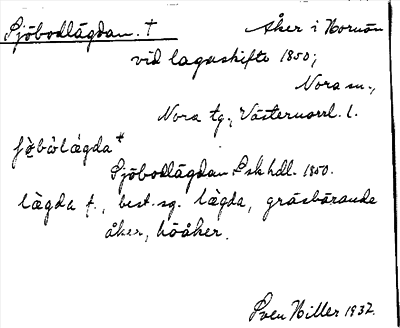 Sjöbodlägdan. † Åker i Hornön
vid lagaskifte 1850;
Nora sn.,
Nora tg., Västernorrl. l.
Sjöbodlägdan Lskhdl. 1850.
lägda f., best. sg. lägda, gräsbärande
åker, höåker.
Sven Hiller 1932.